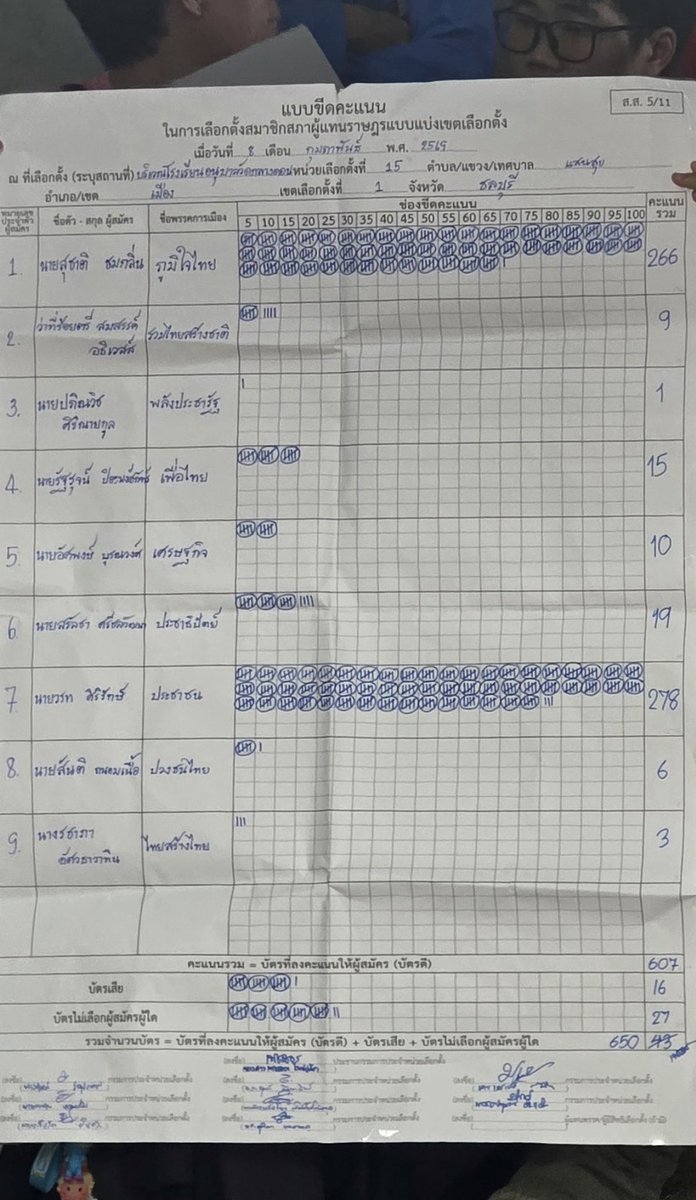 ส.ส. 5/11
แบบขีดคะแนน
ในการเลือกตั้งสมาชิกสภาผู้แทนราษฎรแบบแบ่งเขตเลือกตั้ง
เมื่อวันที่ 8 เดือน กุมภาพันธ์ พ.ศ. 2569
ณ ที่เลือกตั้ง (ระบุสถานที่) บริเวณโรงเรียนอนุบาล หน่วยเลือกตั้งที่ 15 ตำบล/แขวง/เทศบาล แสนสุข
อำเภอ/เขต เมือง เขตเลือกตั้งที่ 1 จังหวัด ชลบุรี
หมายเลขประจำตัวผู้สมัคร ชื่อตัว - สกุล ผู้สมัคร ชื่อพรรคการเมือง ช่องขีดคะแนน คะแนนรวม
5 10 15 20 25 30 35 40 45 50 55 60 65 70 75 80 85 90 95 100
1. นายสุชาติ ชมกลิ่น ภูมิใจไทย 266
2. ว่าที่ร้อยตรี สมสรรค์ รวมไทยสร้างชาติ 9
3. พลังประชารัฐ 1
4. เพื่อไทย 15
5. เศรษฐกิจ 10
6. ประชาธิปัตย์ 19
7. นายวรท ศิริรักษ์ ประชาชน 278
8. นายสันติ ถนอมเนื้อ ปวงชนไทย 6
9. ไทยสร้างไทย 3
คะแนนรวม = บัตรที่ลงคะแนนให้ผู้สมัคร (บัตรดี) 607
บัตรเสีย 16
บัตรไม่เลือกผู้สมัครผู้ใด 27
รวมจำนวนบัตร = บัตรที่ลงคะแนนให้ผู้สมัคร (บัตรดี) + บัตรเสีย + บัตรไม่เลือกผู้สมัครผู้ใด 650
(ลงชื่อ) ประธานกรรมการประจำหน่วยเลือกตั้ง
(ลงชื่อ) กรรมการประจำหน่วยเลือกตั้ง (ลงชื่อ) กรรมการประจำหน่วยเลือกตั้ง (ลงชื่อ) กรรมการประจำหน่วยเลือกตั้ง
(ลงชื่อ) กรรมการประจำหน่วยเลือกตั้ง (ลงชื่อ) กรรมการประจำหน่วยเลือกตั้ง (ลงชื่อ) กรรมการประจำหน่วยเลือกตั้ง
(ลงชื่อ) กรรมการประจำหน่วยเลือกตั้ง (ลงชื่อ) กรรมการประจำหน่วยเลือกตั้ง (ลงชื่อ)